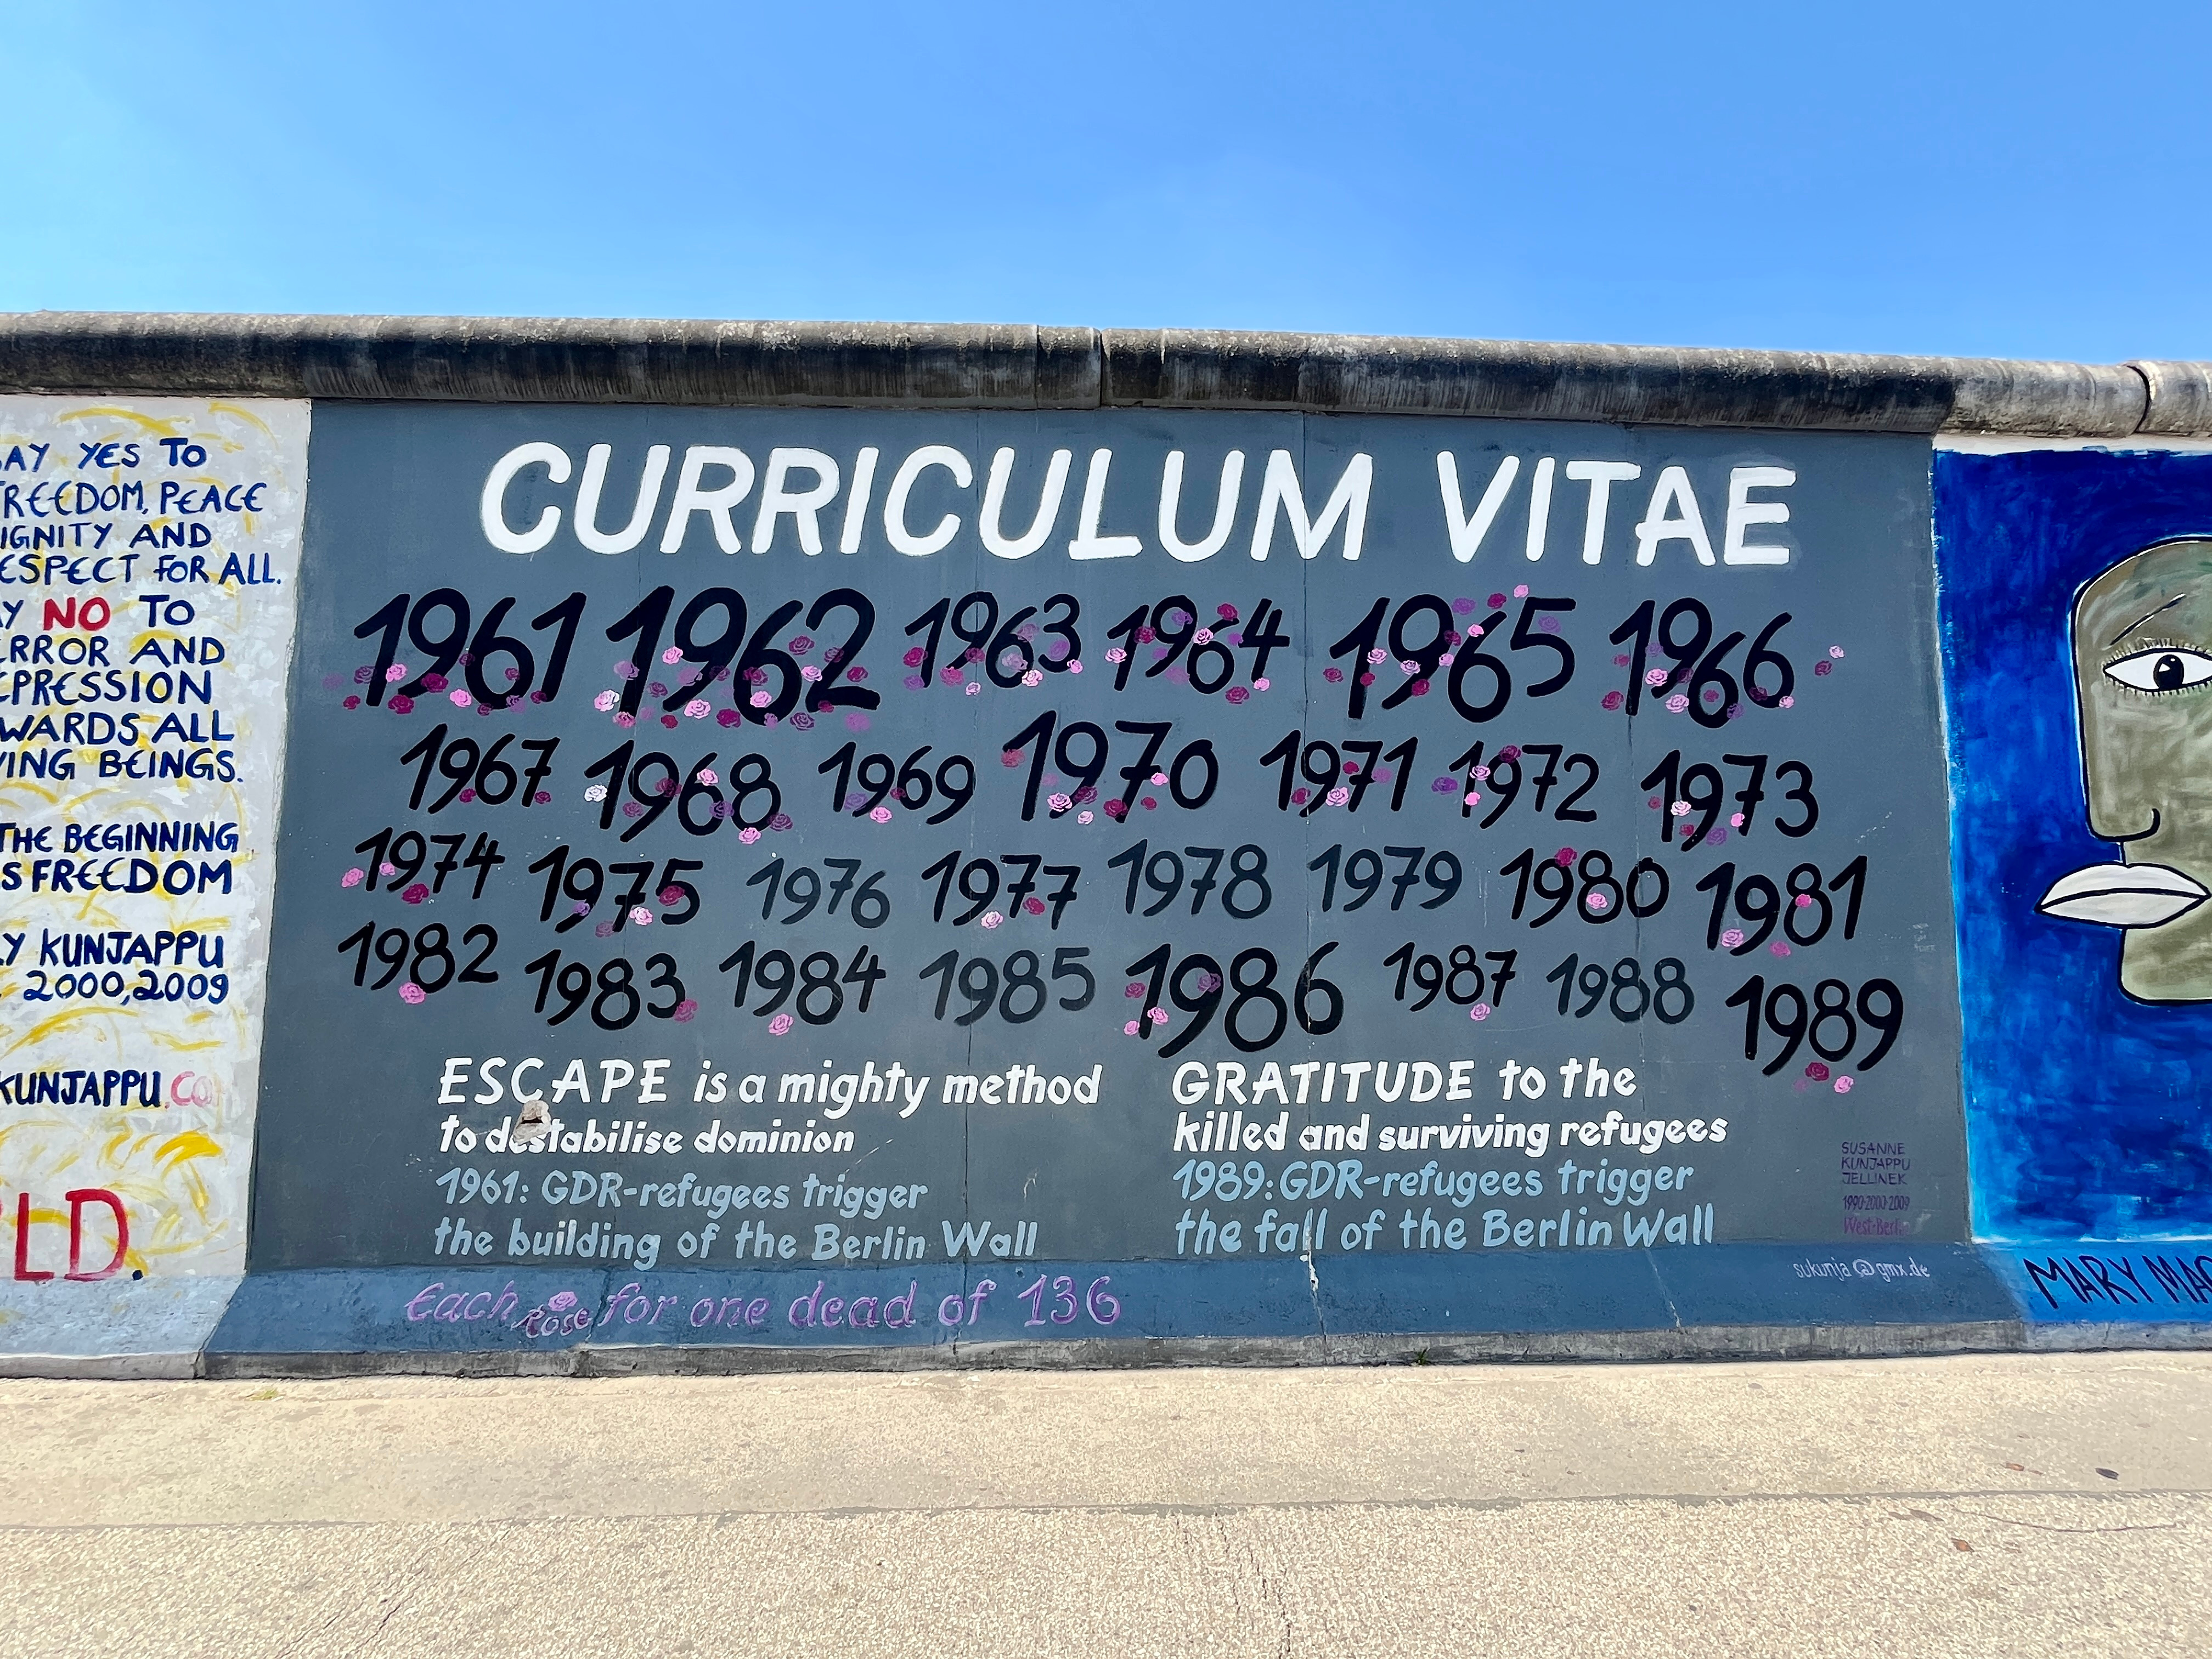 AY YES TO
REEDOM, PEACE
IGNITY AND
ESPECT FOR ALL.
Y NO TO
RROR AND
PRESSION
WARDS ALL
ING BEINGS.
THE BEGINNING
S FREEDOM
Y KUNJAPPU
2000,2009
KUNJAPPU.CO
LD.
CURRICULUM VITAE
1961 1962 1963 1964 1965 1966
1967 1968 1969 1970 1971 1972 1973
1974 1975 1976 1977 1978 1979 1980 1981
1982 1983 1984 1985 1986 1987 1988 1989
ESCAPE is a mighty method
to destabilise dominion
1961: GDR-refugees trigger
the building of the Berlin Wall
GRATITUDE to the
killed and surviving refugees
1989: GDR-refugees trigger
the fall of the Berlin Wall
SUSANNE
KUNJAPPU
JELLINEK
1990·2000·2009
West-Berlin
sukunja@gmx.de
Each rose for one dead of 136
MARY MAC